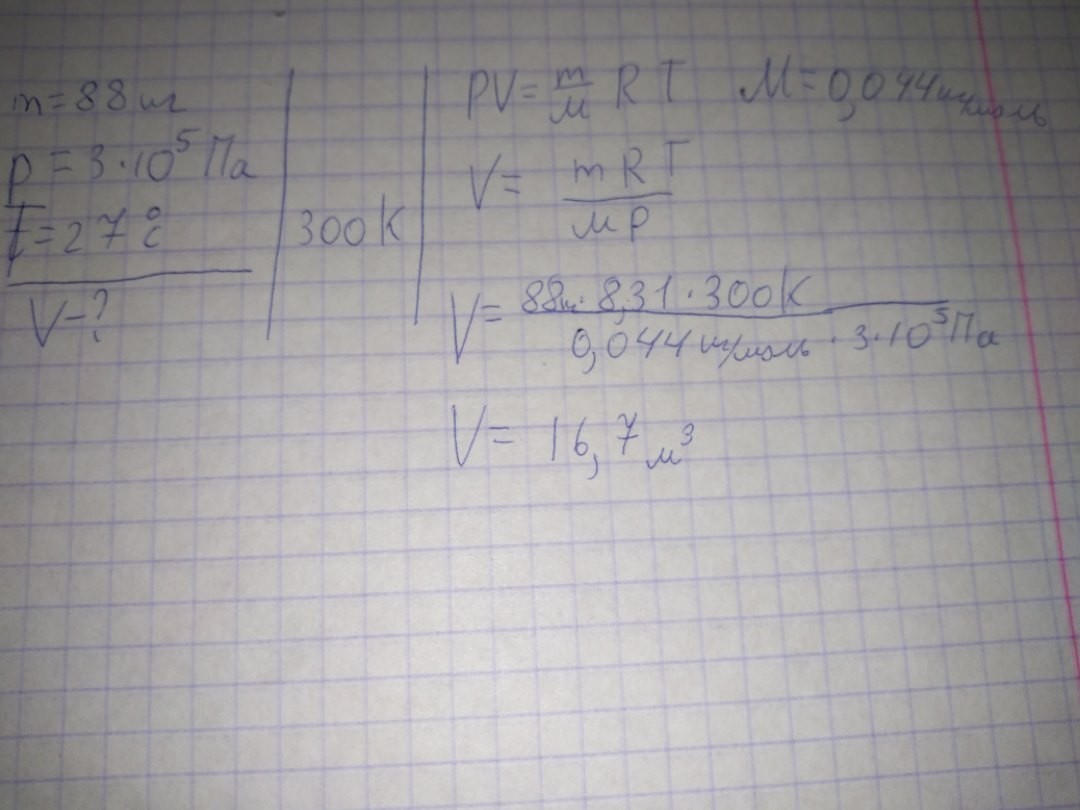 m = 88 кг
p = 3·10⁵ Па
t = 27 °C
V - ?
300 K
PV = m/M R T M = 0,044 кг/моль
V = m R T / M P
V = 88кг · 8,31 · 300K / 0,044 кг/моль · 3·10⁵ Па
V = 16,7 м³